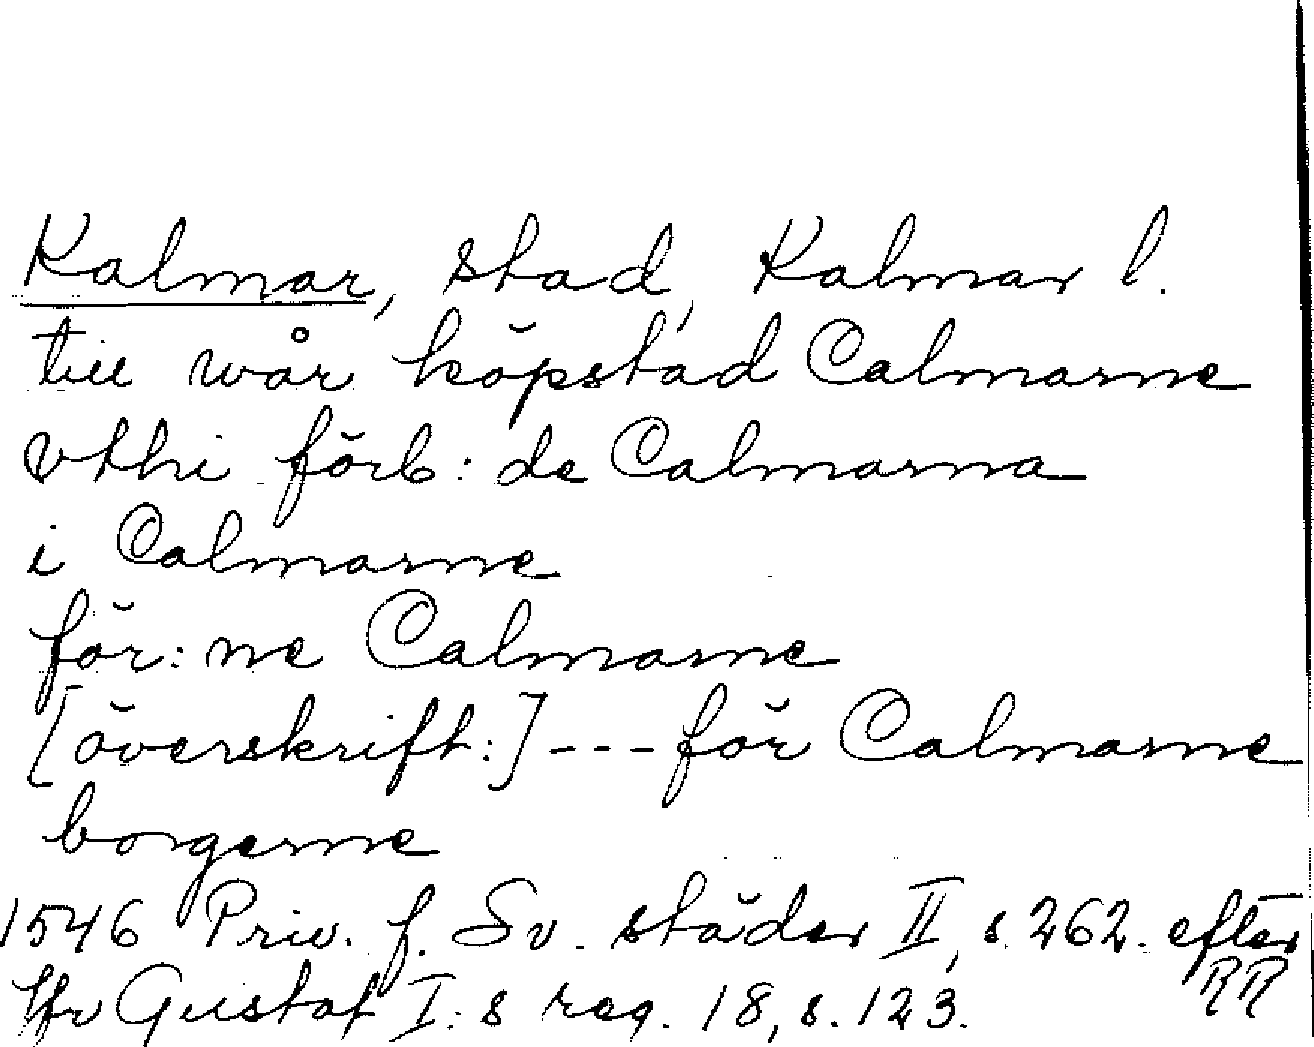 Kalmar, stad, Kalmar l.
till wår köpstad Calmarne
vthi förb: de Calmarna
i Calmarne
för: ne Calmarne
[överskrift:] --- för Calmarne
borgerne
1546 Priv. f. Sv. städer II, s. 262. efter
RR
Gustaf I:s reg. 18, s. 123.